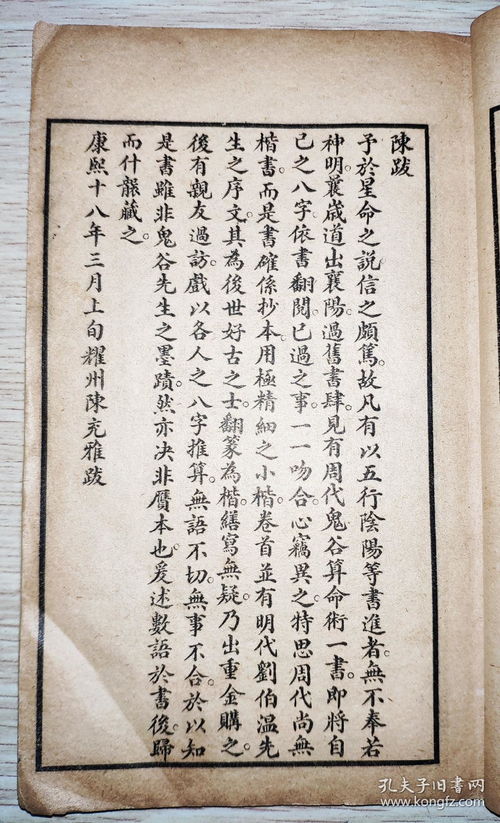 陳跋
予於星命之說信之頗篤。故凡有以五行陰陽等書進者。無不奉若
神明。曩歲道出襄陽。過舊書肆。見有周代鬼谷算命術一書。即將自
己之八字。依書翻閱。已過之事。一一吻合。心竊異之。特思周代尚無
楷書。而是書確係抄本。用極精細之小楷。卷首並有明代劉伯溫先
生之序文。其為後世好古之士。翻篆為楷。繕寫無疑。乃出重金購之。
後有親友過訪。戲以各人之八字推算。無語不切。無事不合。於以知
是書雖非鬼谷先生之墨蹟。然亦决非贋本也。爰述數語於書後。歸
而什襲藏之。
康熙十八年三月上旬耀州陳充雅跋
孔夫子旧书网
www.kongfz.com